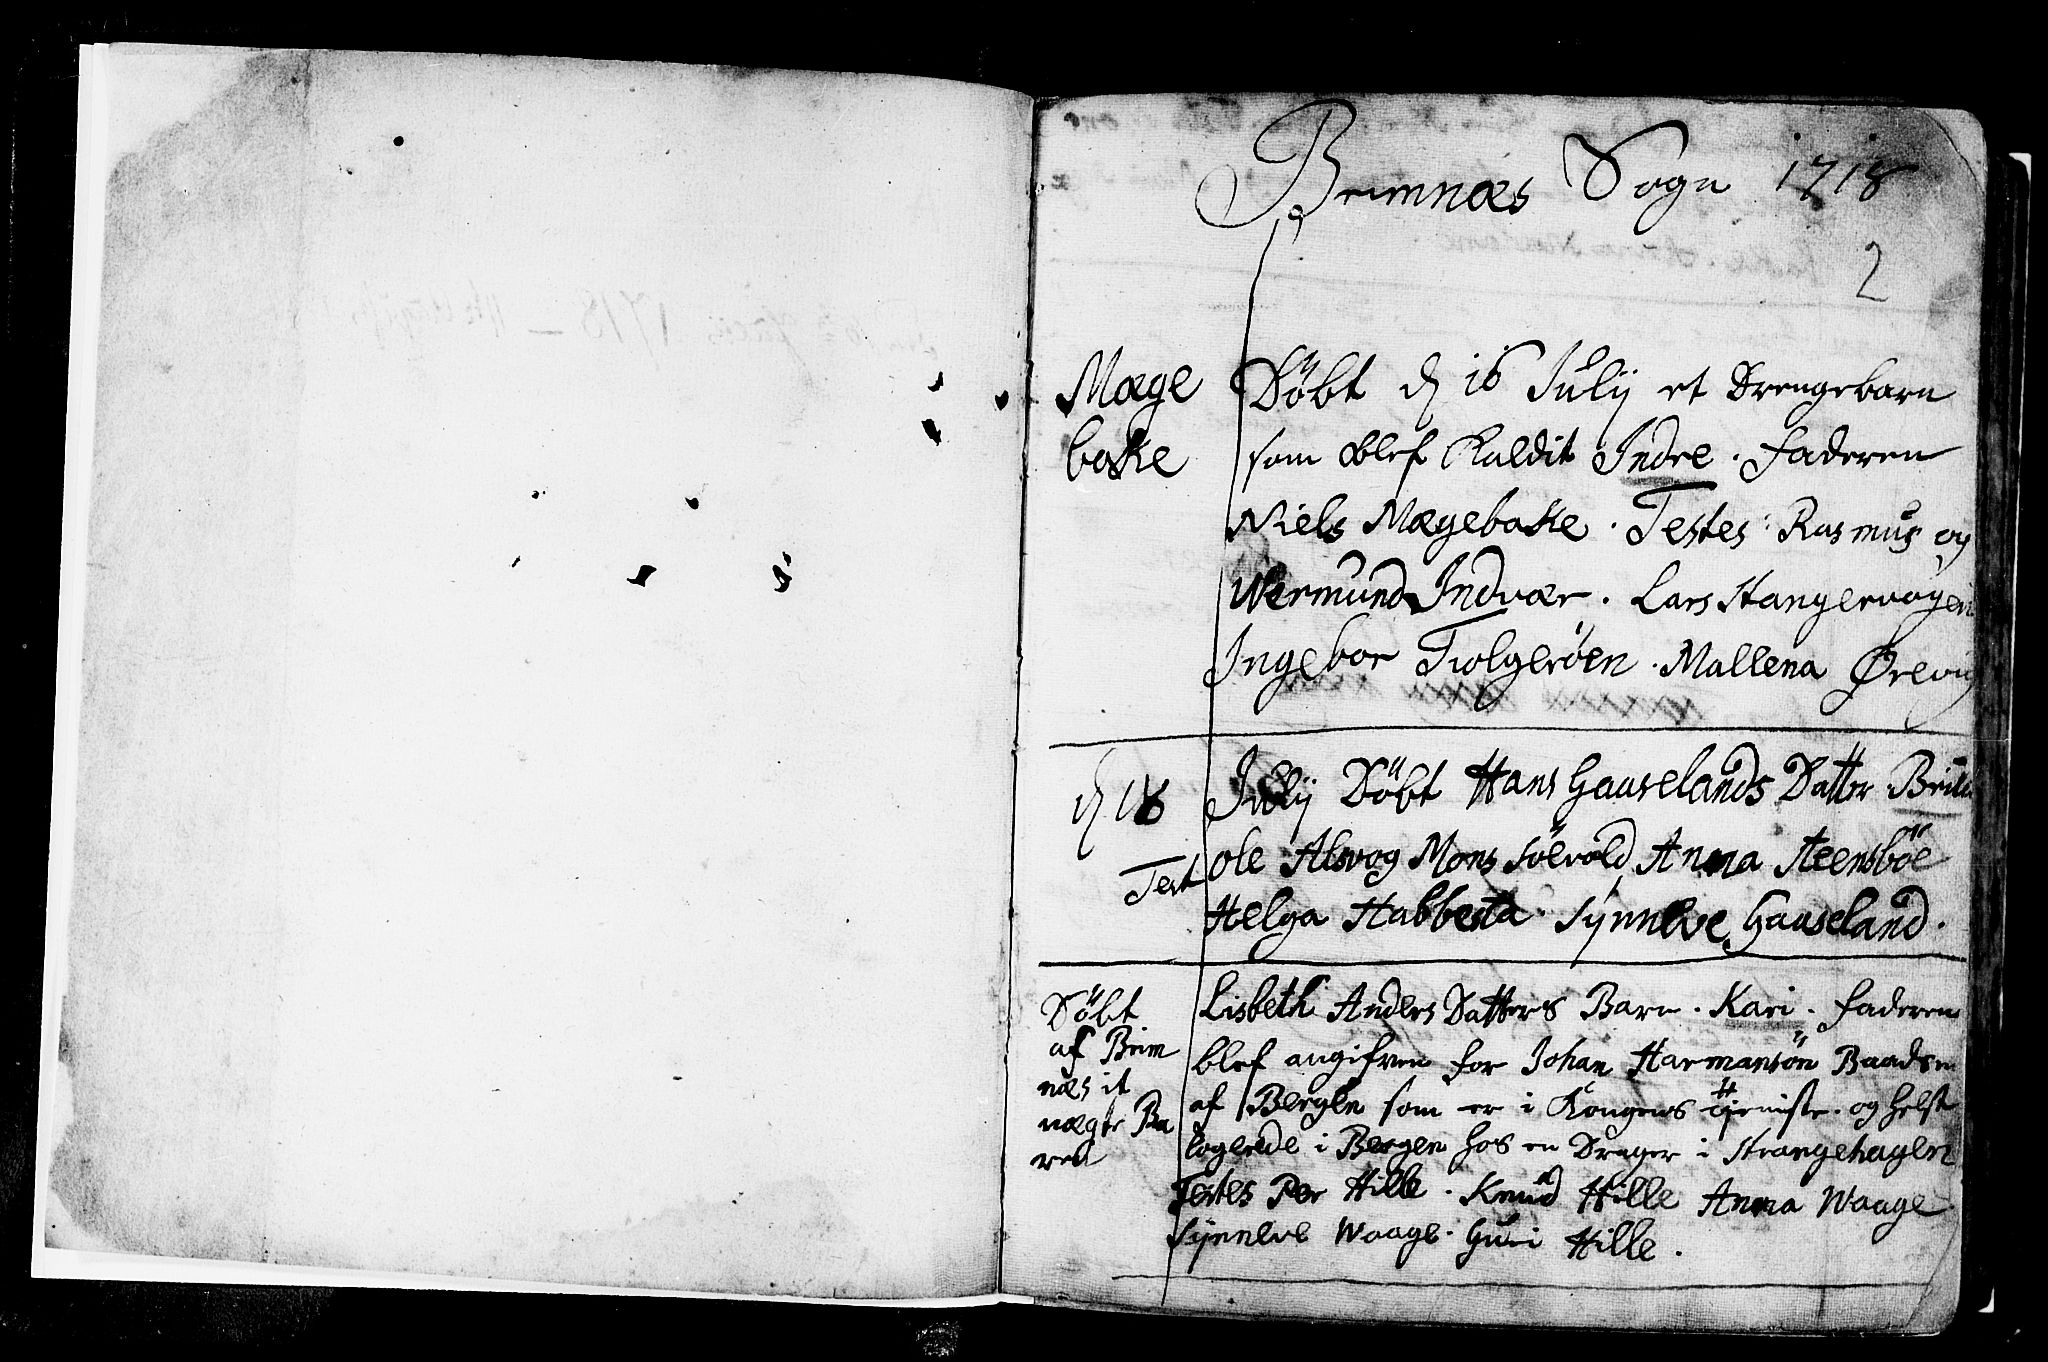 Bremnæs Sogn 1718
2
Mæge
bakke
Døbt d 16 Julij et Drengebarn
som blef Kaldit Indre. Faderen
Niels Mægebakke. Testes: Rasmus og
Wermund Indvær. Lars Stangervogen
Ingebor Folgerøen. Mallena Ørevig
d 18
Julij Døbt Hans Gaaselands Datter
Test
ole Alsvog Mons Sølvold Anna Steensbøe
Helga Habbesta. Synneve Gaaseland.
Døbt
af Brim
næs it
uægte Ba
ren
Lisbeth Anders Datters Barn. Kari. Faderen
blef angifven for Johan Harmansøn Baadsm
af Bergen som er i Kongens tjeniste. og helst
logerede i Bergen hos en Drager i Strangehagen
Testes Per Hille. Knud Hille Anna Waage
Synneve Waage. Guri Hille.